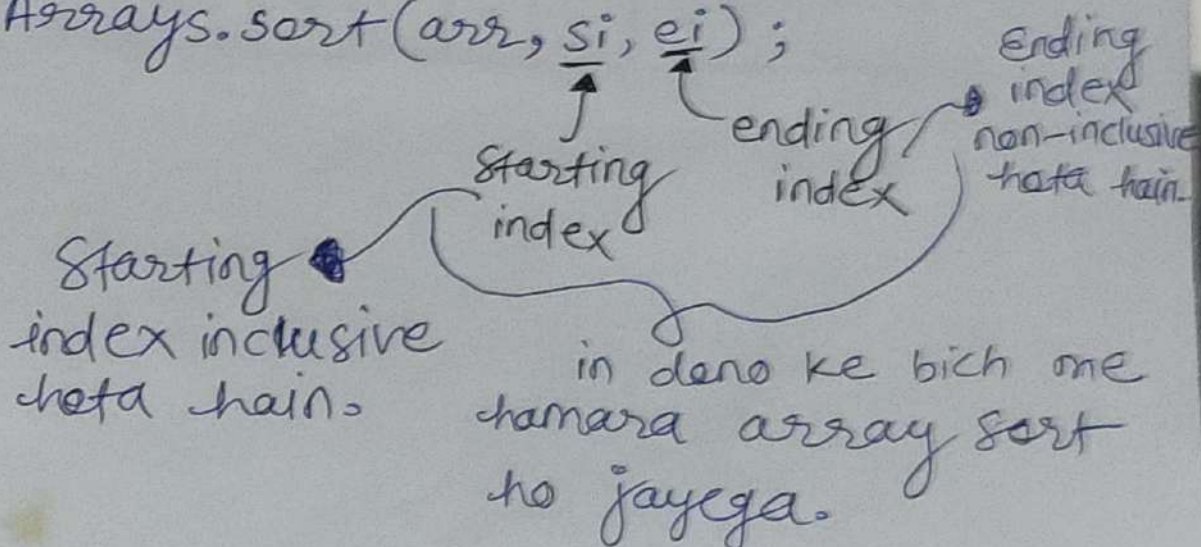 Arrays.sort(arr, si, ei);
Starting
index
ending
index
Ending
index
non-inclusive
hota hain.
Starting
index inclusive
hota hain.
in dono ke bich me
hamara array sort
ho jayega.